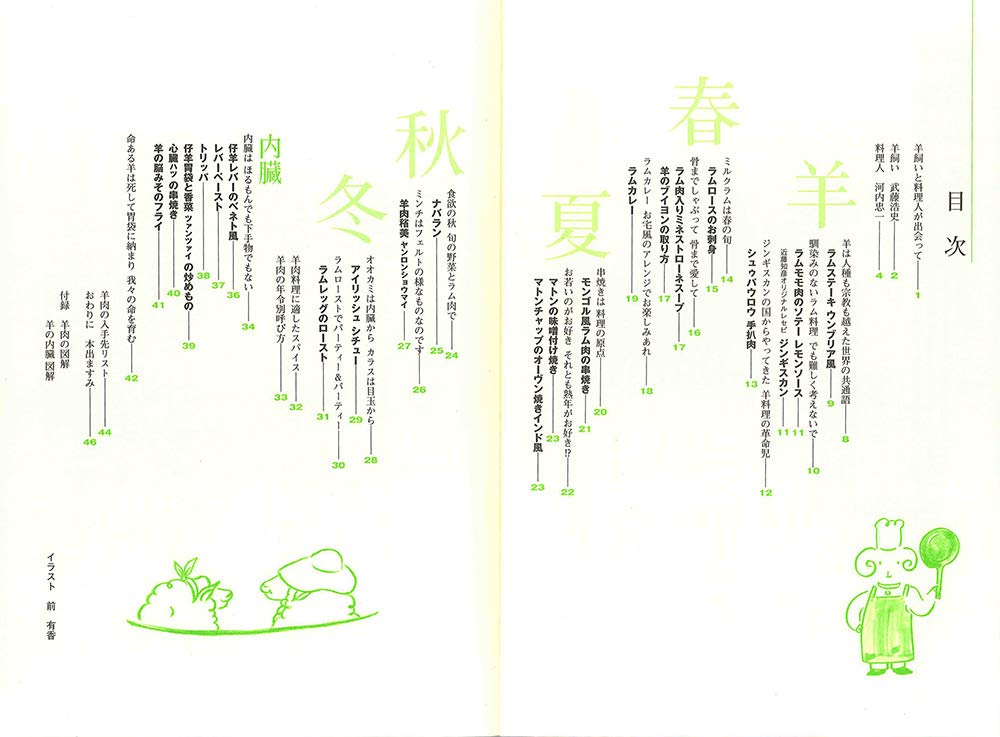 目次
羊飼いと料理人が出会って 1
羊飼い 武藤浩史 2
料理人 河内忠一 4
羊
羊は人種も宗教も越えた世界の共通語 8
ラムステーキ ウンブリア風 9
馴染みのないラム料理 でも難しく考えないで 10
ラムモモ肉のソテー レモンソース 11
近藤知彦オリジナルレセピ ジンギスカン 11
ジンギスカンの国からやってきた 羊料理の革命児 12
シュウパウロウ 手扒肉 13
春
ミルクラムは春の旬 14
ラムロースのお刺身 15
骨までしゃぶって 骨まで愛して 16
ラム肉入りミネストローネスープ 17
羊のブイヨンの取り方 17
ラムカレー お宅風のアレンジでお楽しみあれ 18
ラムカレー 19
夏
串焼きは料理の原点 20
モンゴル風ラム肉の串焼き 21
お若いのがお好き それとも熟年がお好き!? 22
マトンの味噌付け焼き 23
マトンチャップのオーヴン焼きインド風 23
秋
食欲の秋 旬の野菜とラム肉で 24
ナバラン 25
ミンチはフェルトの様なものなのです 26
羊肉 ヤンロンショウマイ 27
冬
オオカミは内臓から カラスは目玉から 28
アイリッシュ シチュー 29
ラムローストでパーティー&パーティー 30
ラムレッグのロースト 31
羊肉料理に適したスパイス 32
羊肉の年令別呼び方 33
内臓
内臓は ほるもんでも下手物でもない 34
仔羊レバーのベネト風 36
レバーペースト 37
トリッパ 38
仔羊胃袋と香菜 ツァンツァィ の炒めもの 39
心臓ハツ の串焼き 40
羊の脳みそのフライ 41
命ある羊は死して胃袋に納まり 我々の命を育む 42
羊肉の入手先リスト 44
おわりに 本出ますみ 46
付録 羊肉の図解
羊の内臓図解
イラスト 前 有香